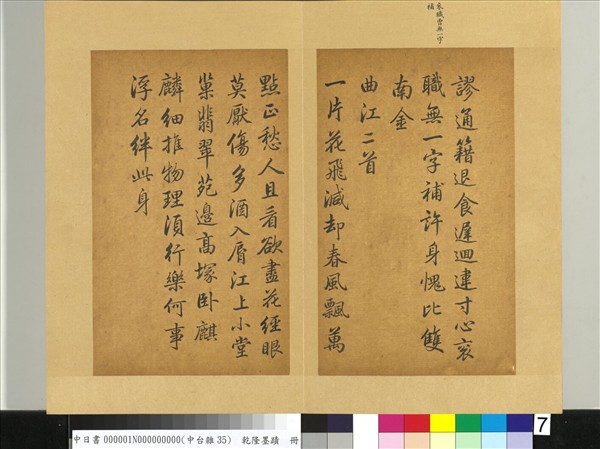 衮職曾無一字
補
謬通籍退食遲迴違寸心衮
職無一字補許身愧比雙
南金
曲江二首
一片花飛減却春風飄萬
點正愁人且看欲盡花經眼
莫厭傷多酒入脣江上小堂
巢翡翠苑邊高塚卧麒
麟細推物理須行樂何事
浮名絆此身
中日書 000001N000000000(中台雜 35) 乾隆墨蹟 冊
7